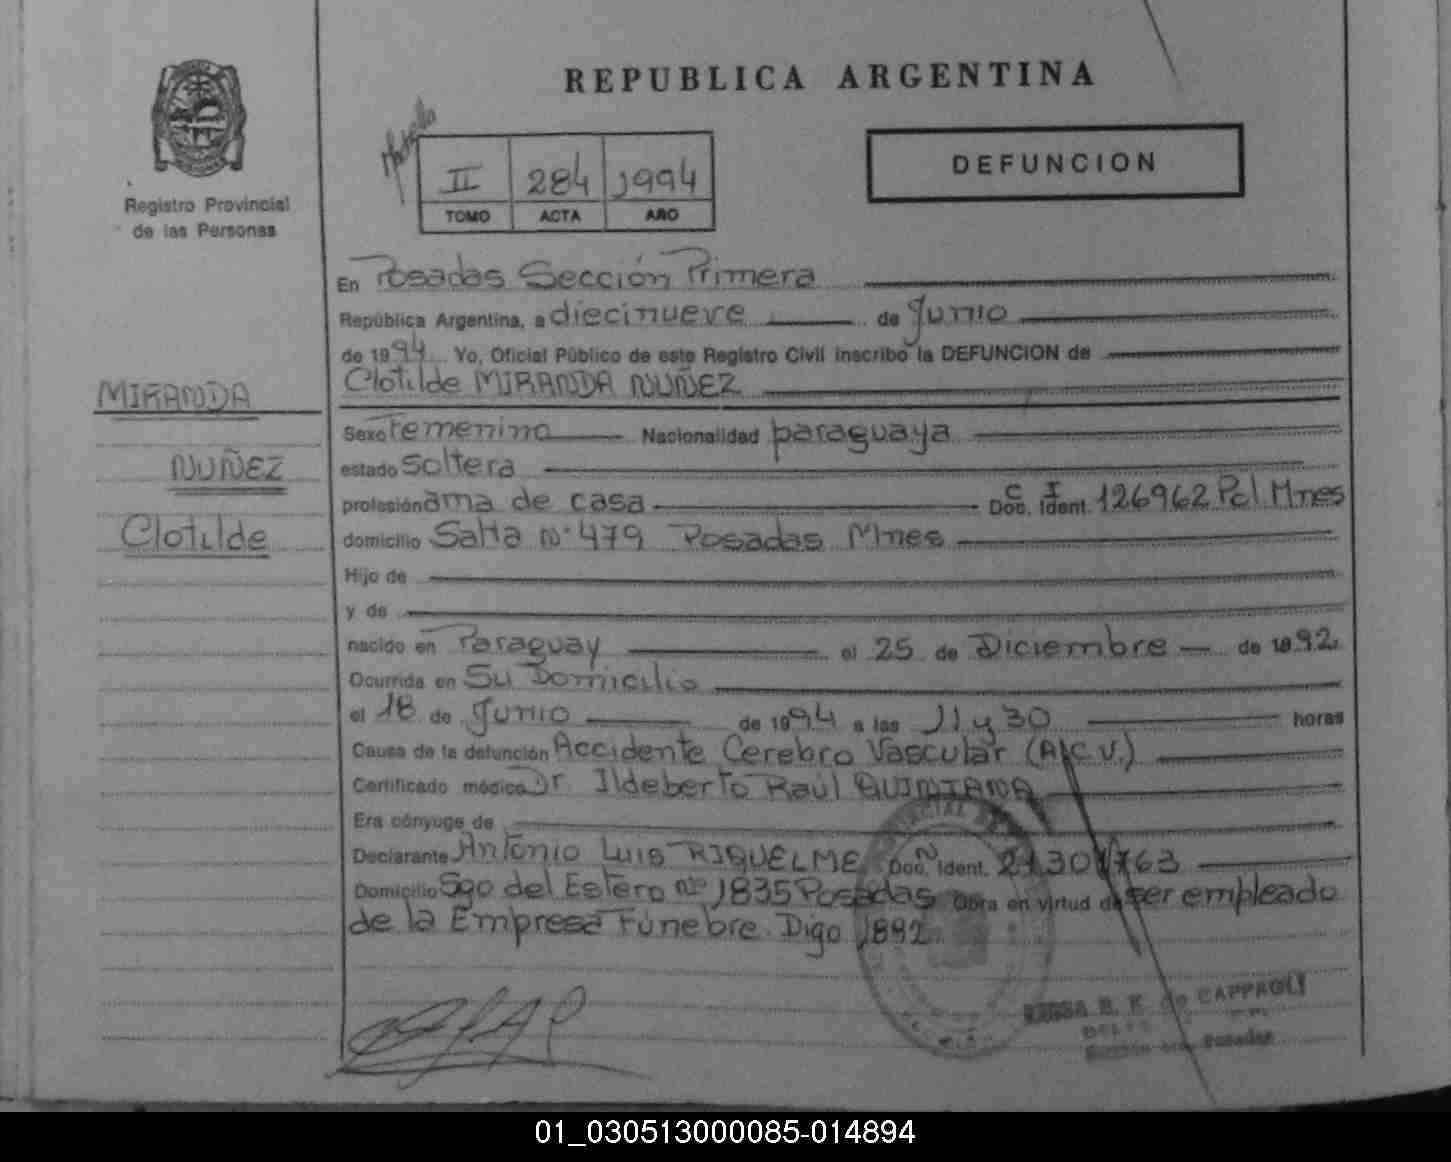 REPUBLICA ARGENTINA
Registro Provincial
de las Personas
II 284 1994
TOMO ACTA AÑO
DEFUNCION
MIRANDA
NUÑEZ
Clotilde
En Posadas Sección Primera
República Argentina, a diecinueve de Junio
de 1994 Yo, Oficial Público de este Registro Civil inscribo la DEFUNCION de
Clotilde MIRANDA NUÑEZ
Sexo Femenino Nacionalidad paraguaya
estado Soltera
profesión ama de casa Doc. Ident. C I 126962 Pcl Mnes
domicilio Salta Nº 479 Posadas Mnes
Hijo de
y de
nacido en Paraguay el 25 de Diciembre de 1892
Ocurrida en Su Domicilio
el 18 de Junio de 1994 a las 11 y 30 horas
Causa de la defunción Accidente Cerebro Vascular (A.C.V.)
Certificado médico Dr. Ildeberto Raúl QUINTANA
Era cónyuge de
Declarante Antonio Luis RIQUELME Doc. Ident.
Domicilio Sgo del Estero nº 1835 Posadas Obra en virtud de ser empleado
de la Empresa Fúnebre. Digo 1892.
B. R. de CAPPAGLI
Posadas
01_030513000085-014894